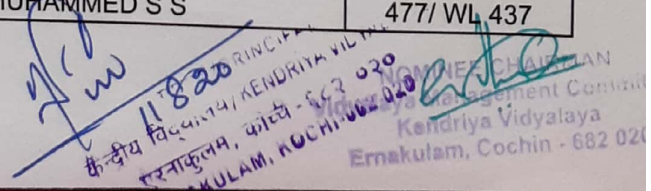 MUHAMMED S S
477/ WL 437
11820
PRINCIPAL
केन्द्रीय विद्यालय/KENDRIYA VI
एरनाकुलम, कोच्ची - 682 020
KULAM, KOCHI-682 020
NOMINEE CHAIRMAN
Vidyalaya Management Committ
Kendriya Vidyalaya
Ernakulam, Cochin - 682 020